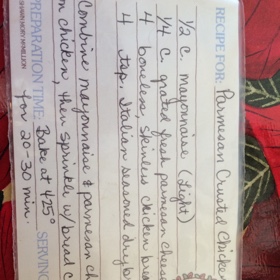 RECIPE FOR: Parmesan Crusted Chicke
1/2 c. mayonnaise (Light)
1/4 c. grated fresh parmesan chees
4 boneless, skinless chicken brea
4 tsp. Italian seasoned dry b
Combine mayonnaise & parmesan ch
on chicken, then sprinkle w/ bread c
PREPARATION TIME: Bake at 425° SERVING
for 20-30 min.